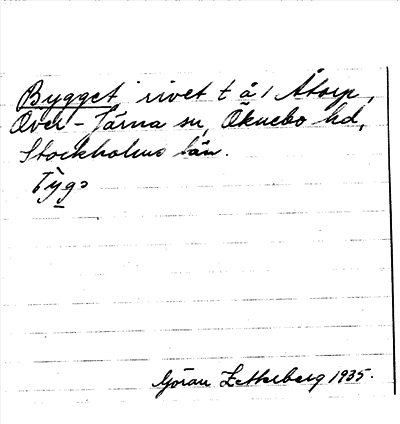 Bygget rivet t å 1 Åtorp,
Över-Järna sn, Öknebo hd,
Stockholms län.
Tỳgə
Göran Zetterberg 1935.